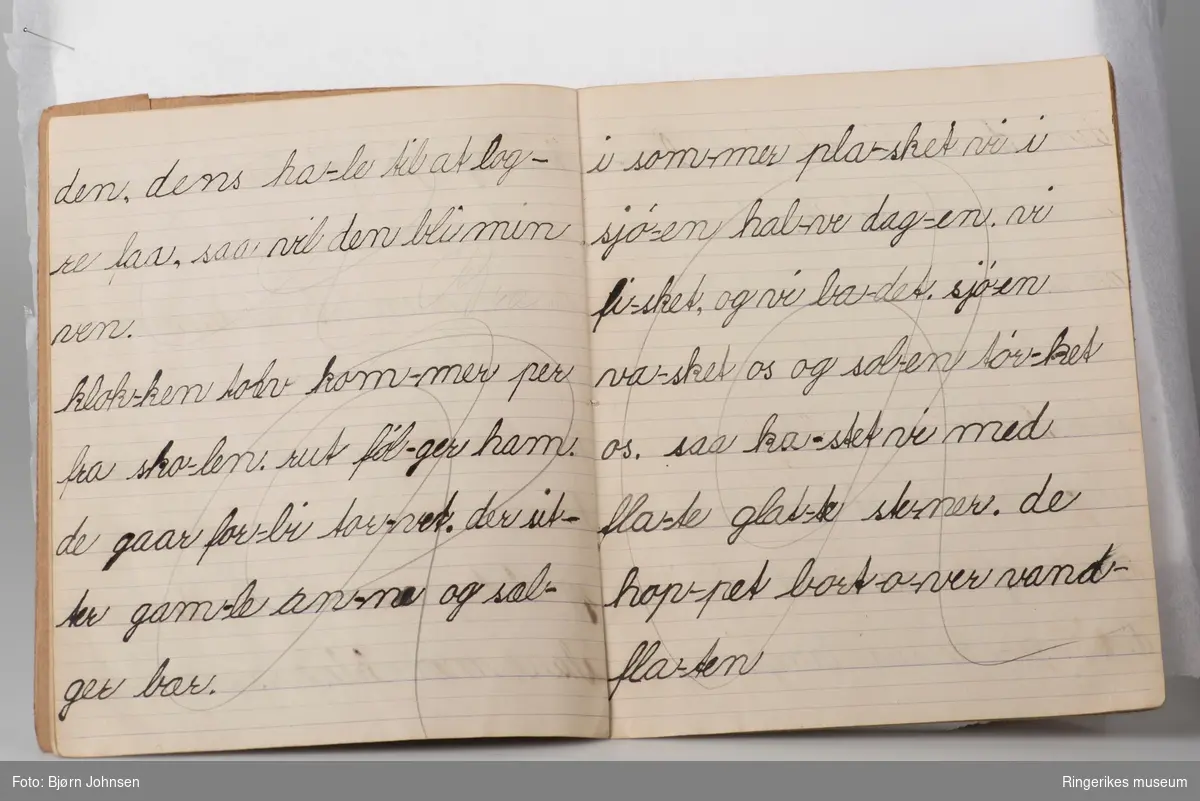 den. dens ha-le til at log-
re faa, saa vil den bli min
ven.
klok-ken tolv kom-mer per
fra sko-len. rut föl-ger ham.
de gaar for-bi tor-vet. der sit-
ter gam-le an-ne og sæl-
ger bær.
i som-mer pla-sket vi i
sjö-en hal-ve dag-en. vi
fi-sket, og vi ba-det. sjö-en
va-sket os og sol-en tör-ket
os. saa ka-stet vi med
fla-te glat-te ste-ner. de
hop-pet bort-o-ver vand-
fla-ten
Foto: Bjørn Johnsen
Ringerikes museum